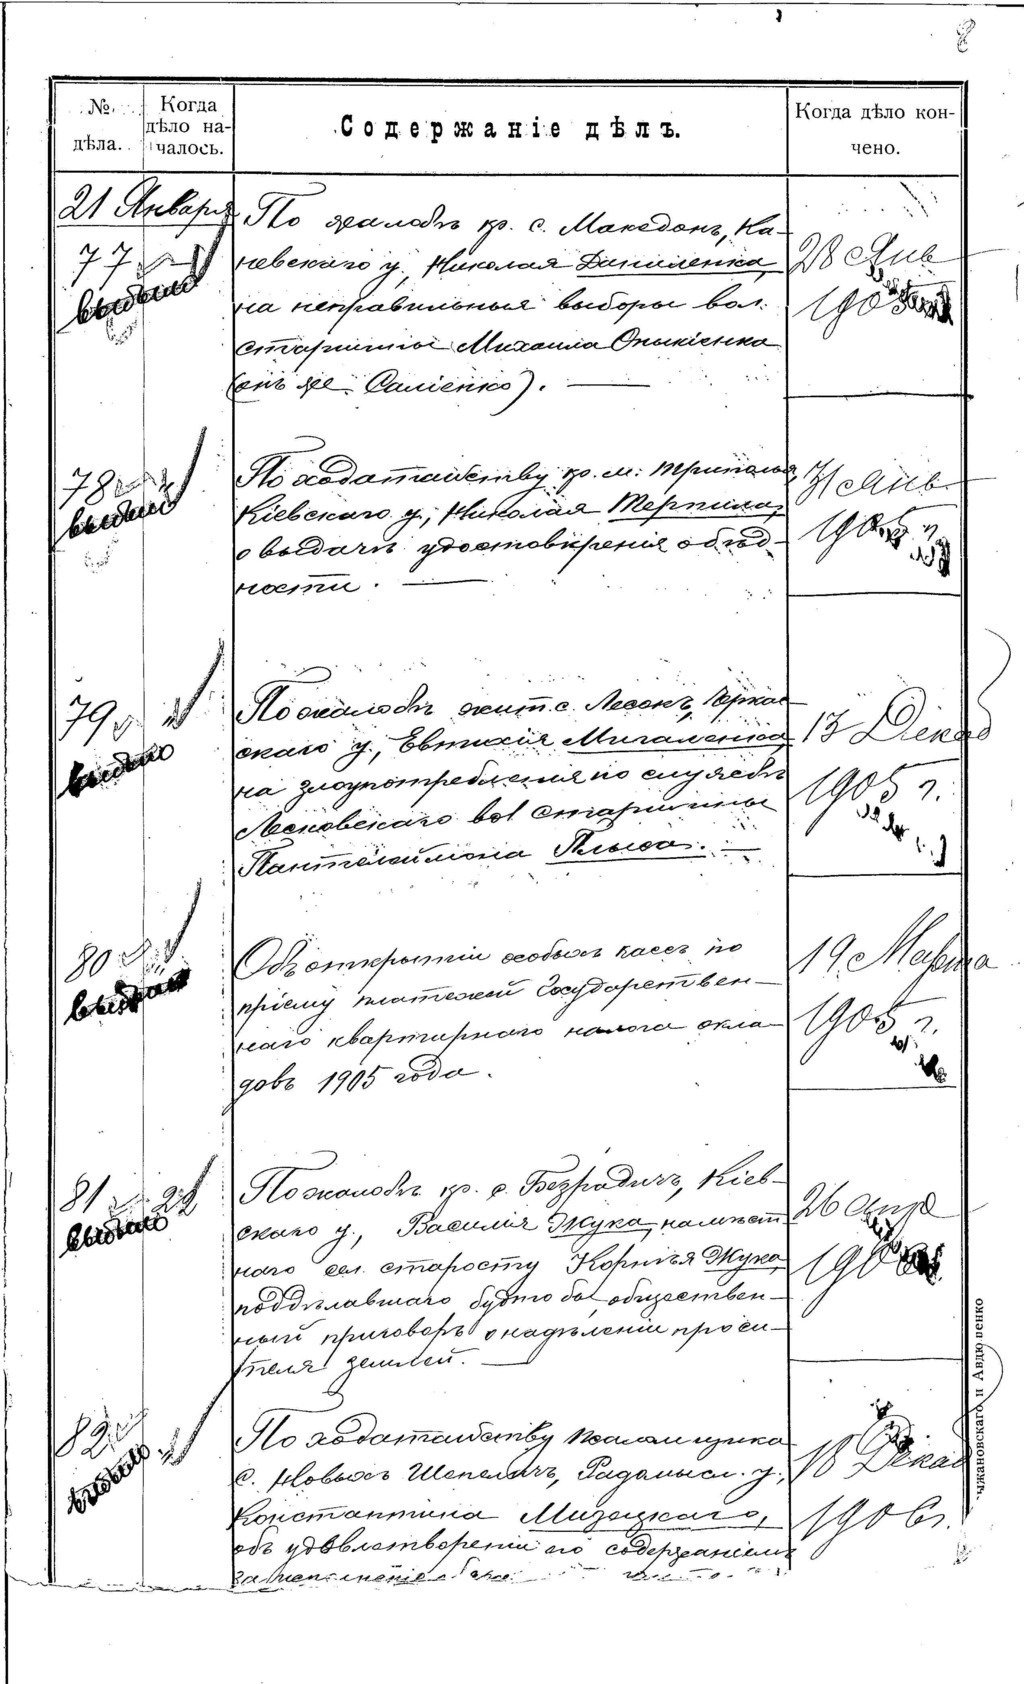 8
№ дѣла.
Когда дѣло на-
чалось.
Содержаніе дѣлъ.
Когда дѣло кон-
чено.
21 Января
77
выбыло
По жалобѣ кр. с. Македонъ, Ка-
невскаго у., Николая Даниленка,
на неправильные выборы вол.
старшины Михаила
(онъ же
28 Янв
1905
78
выбыло
По ходатайству кр. м. Триполья,
Кіевскаго у., Николая Терпила,
о выдачѣ удостовѣренія о бѣд-
ности.
31 Янв
1905 г.
79
выбыло
По жалобѣ жит. с. Лесокъ, Черкас-
скаго у., Евтихія Мигаленка,
на злоупотребленія по службѣ
Лесковскаго вол старшины
Пантелеймона
13 Декаб
1905 г.
80
выбыло
Объ открытіи особыхъ кассъ по
пріему платежей Государствен-
наго квартирнаго налога окла-
довъ 1905 года.
19 Марта
1905 г.
81
22
выбыло
По жалобѣ кр. с. Безрадичъ, Кіев-
скаго у., Василія Жука, на мѣст
наго сел. старосту Корнѣя Жука,
поддѣлавшаго будто бы обществен-
ный приговоръ о надѣленіи проси-
теля землей.
26 Апр
190
82
выбыло
По ходатайству псаломщика
с. Новыхъ Шепеличъ, Радомысл. у.,
Константина Мизецкаго,
объ удовлетвореніи его содержаніемъ
за исполненіе
18 Декаб
1906 г.
ыжановскаго и Авдюшенко